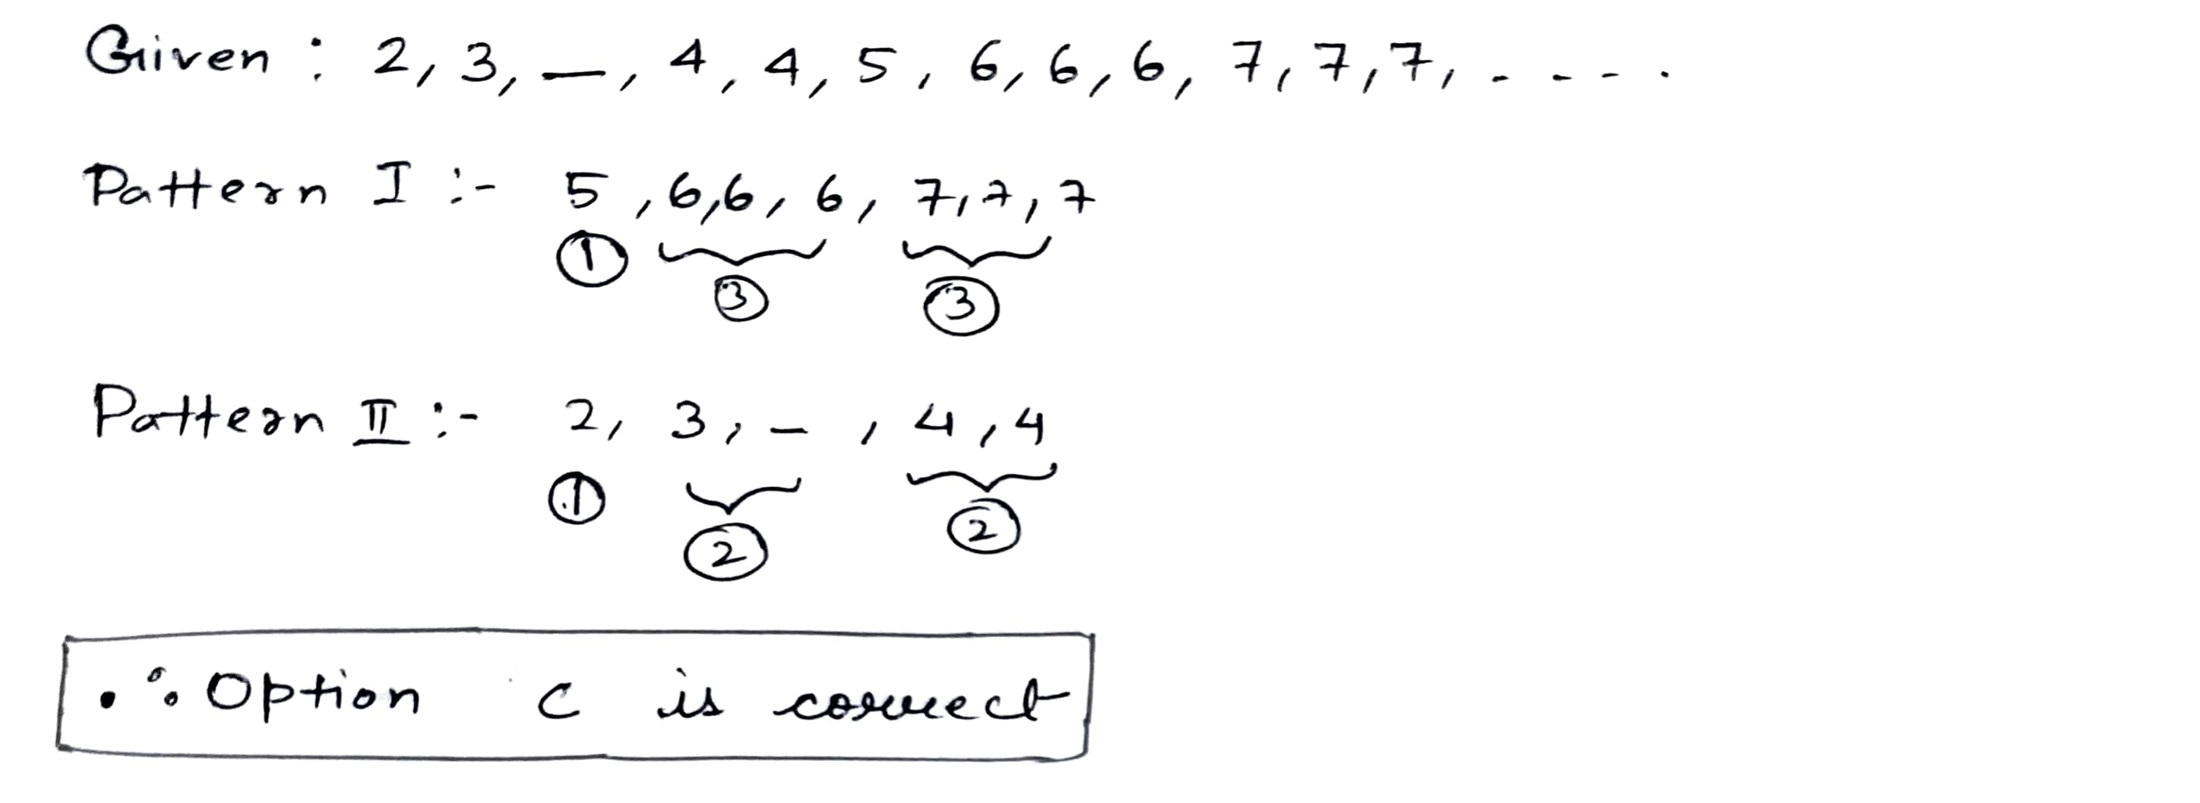 Given : 2, 3, —, 4, 4, 5, 6, 6, 6, 7, 7, 7, - - - .
Pattern I :- 5, 6, 6, 6, 7, 7, 7
1 3 3
Pattern II :- 2, 3, -, 4, 4
1 2 2
∴ Option C is correct